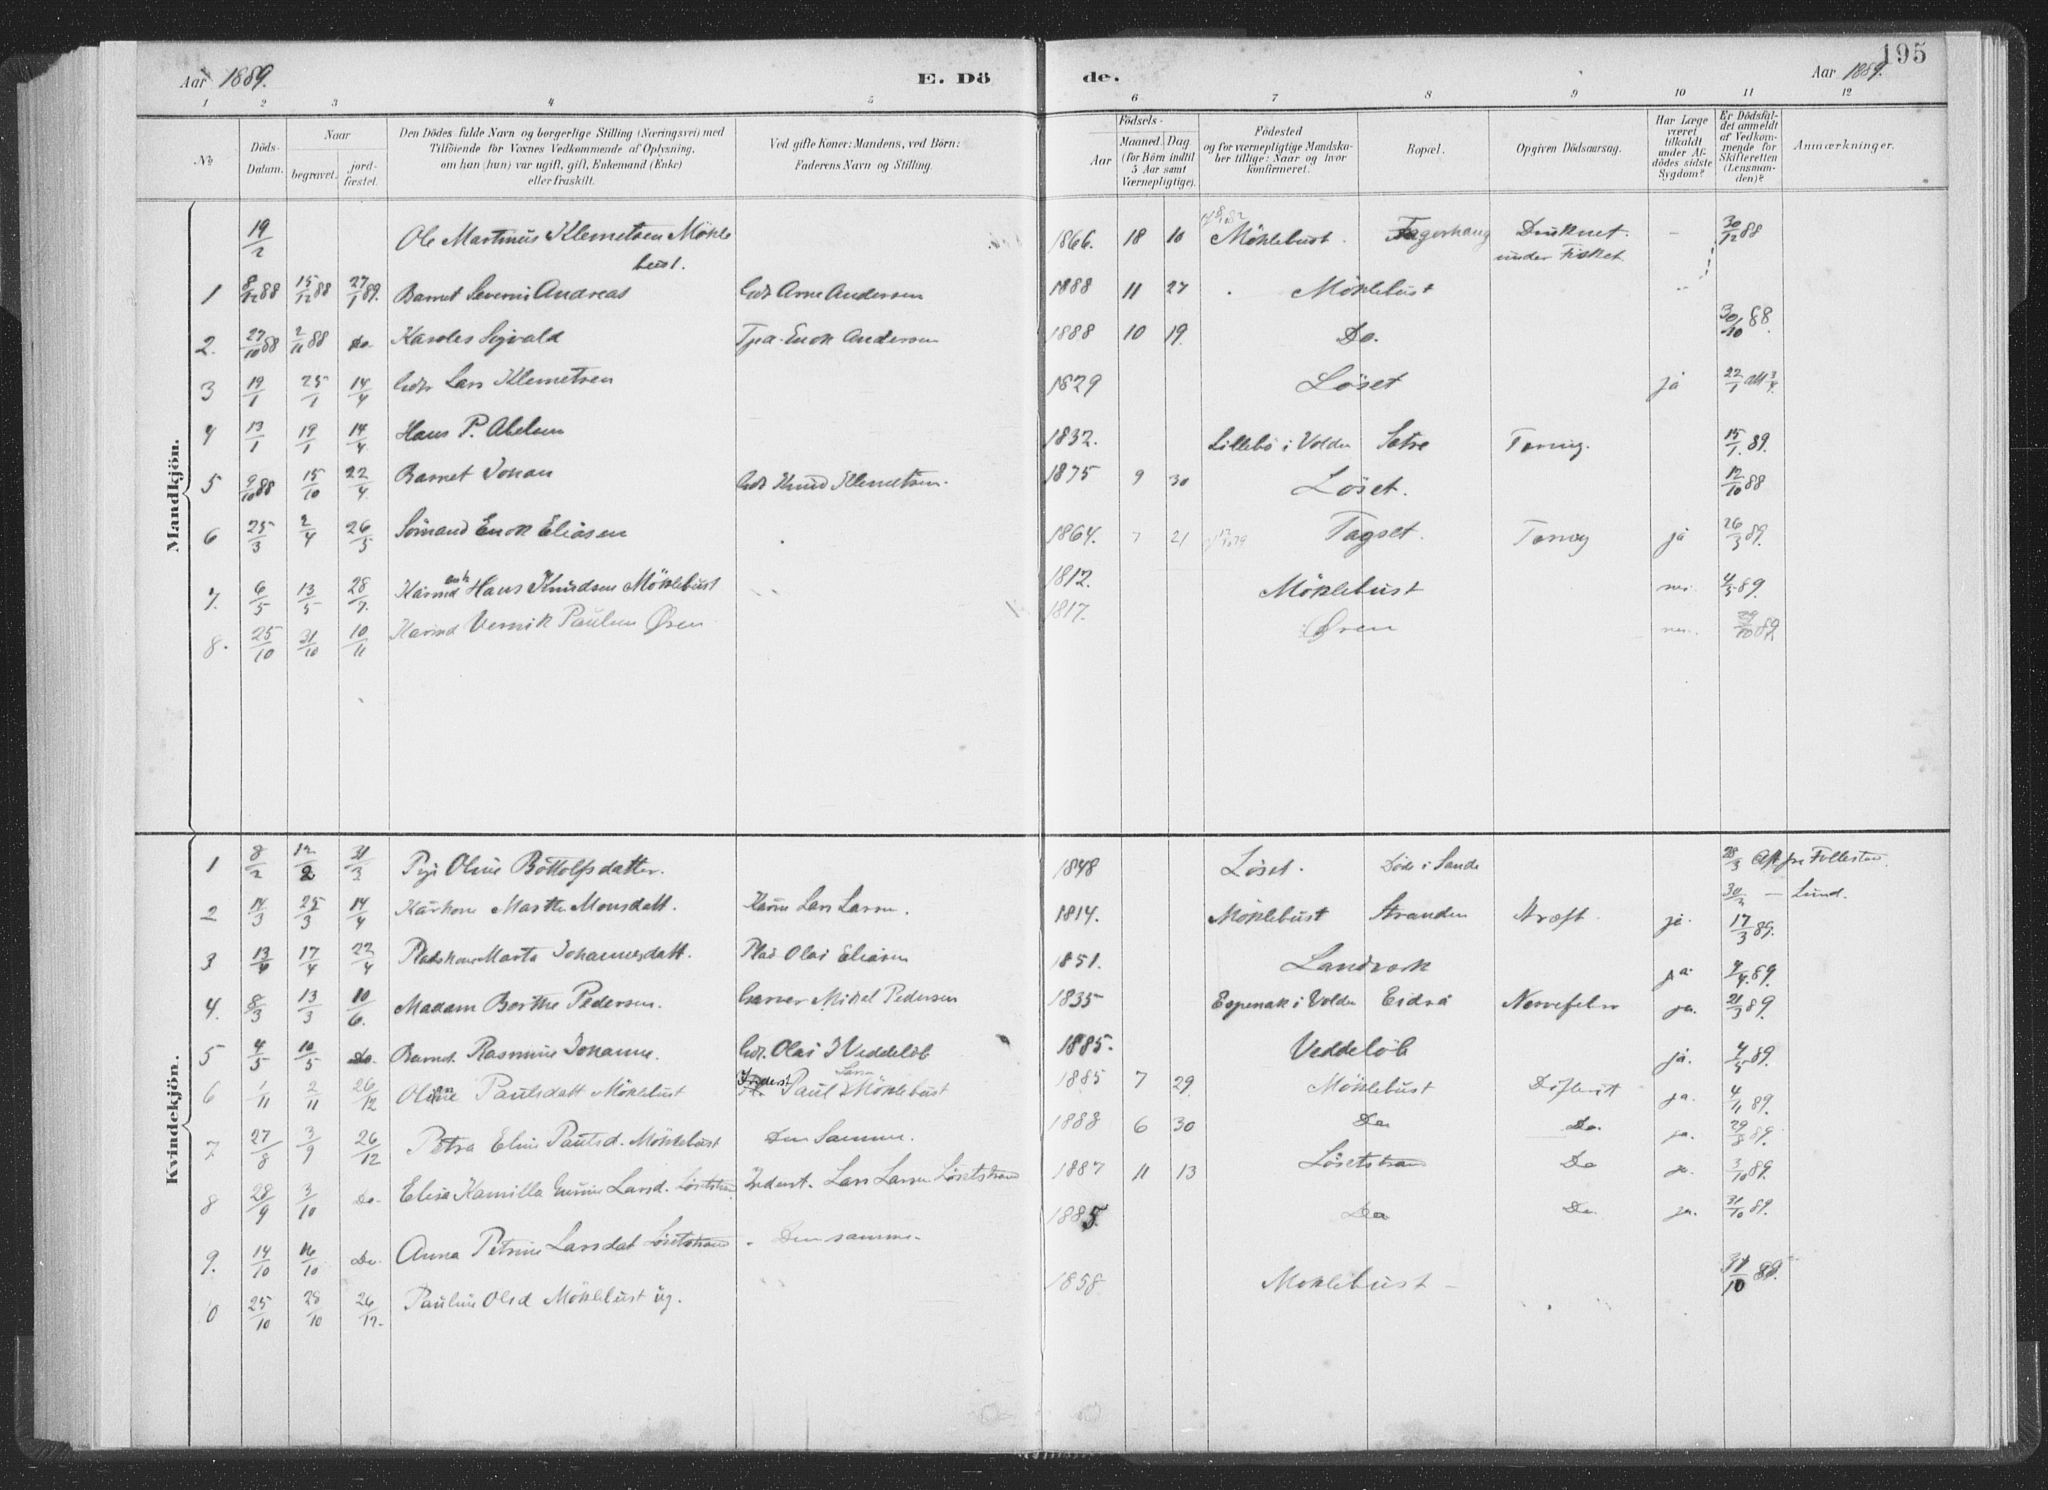 195
Aar 1889. E. Dö de. Aar 1889.
1 2 3 4 5 6 7 8 9 10 11 12
No
Döds-Datum.
Naar
begravet.
jord-fæstet.
Den Dödes fulde Navn og borgerlige Stilling (Næringsvei) med
Tilföiende for Voxnes Vedkommende af Oplysning,
om han (hun) var ugift, gift, Enkemand (Enke)
eller fraskilt.
Ved gifte Koner: Mandens, ved Börn:
Faderens Navn og Stilling.
Födsels-
Aar
Maaned Dag
(for Börn indtil
5 Aar samt
Værnepligtige).
Födested
og for værnepligtige Mandska-
ber tillige: Naar og hvor
konfirmeret.
Bopæl.
Opgiven Dödsaarsag.
Har Læge
været
tilkaldt
under Af-
dödes sidste
Sygdom?
Er Dödsfal-
det anmeldt
af Vedkom-
mende for
Skifteretten
(Lensman-
den)?
Anmærkninger.
Mandkjön.
19/2 Ole Martinus Klemetsen Möklebust. 1866. 18 10 Möklebust. Fagerhaug Druknet under Fisket. - 30/12 88
1 8/12 88 15/12 88 27/1 89. Barnet Severin Andreas Arne Andersen 1888 11 27 Möklebust
2. 27/10 88 2/11 88 Do. Karoles Sigvald Enok Andersen 1888 10 19. Do. 30/10 88.
3 19/1 25/1 14/4 Lars Klemetsen 1829 Löset ja 22/1
4 13/1 19/1 14/4 Hans P. Abelsen 1832. Lillebö i Volden Sætre Tæring. 15/1 89.
5 9/10 88 15/10 22/4 Barnet Johan Knud Klemetsen. 1875 9 30 Löset. 12/10 88
6 25/3 2/4 26/5 Sömand Enok Eliasen 1864. 7 21 Fagset. Tæring ja 26/3 89.
7. 6/5 13/5 28/7. Hans Knudsen Möklebust 1812. Möklebust nei 4/5 89.
8. 25/10 31/10 10/11 Vernik Paulsen Øren 1817. Øren nei. 29/10 89.
Kvindekjön.
1 8/2 12/2 31/3 Pige Oline Bottolfsdatter. 1848 Löset. Döde i Sande 28/3
30/3 - Lund.
2 14/3 25/3 14/4 Kårkone Marthe Monsdatt. Lars Larsen. 1814. Möklebust Stranden Kræft. ja. 17/3 89.
3 13/4 17/4 22/4 Marta Johannesdatt. Olai Eliasen 1851. Landrok ja 4/4 89.
4. 8/3 13/3 10/6. Madam Berthe Pedersen. Garver Mikal Pedersen 1835 Espenak i Volden Eidså Nervefeber ja. 21/3 89.
5 4/5 10/5 Do. Barnet Rasmine Johanne. Olai J Veddelöb 1885. Veddelöb ja. 4/5 89.
6 1/11 2/11 26/12 Paulsdatt Möklebust Inderst Paul Larsen Möklebust 1885 7 29 Möklebust Difterit ja. 4/11 89.
7 27/8 3/9 26/12 Petra Eline Paulsd. Möklebust Den Samme. 1888 6 30 Do Do. ja. 29/8 89.
8 28/9 3/10 Do. Elisa Kamilla Larsd. Lösetstrand Inderst. Lars Larsen Lösetstrand 1887 11 13 Lösetstrand Do ja. 3/10 89.
9. 14/10 16/10 Do. Anna Petrine Larsdat Lösetstrand Den samme. 1885. Do Do ja. 31/10 89.
0 25/10 28/10 26/12. Pauline Olsd Möklebust ug. 1858 Möklebust 31/10 89.